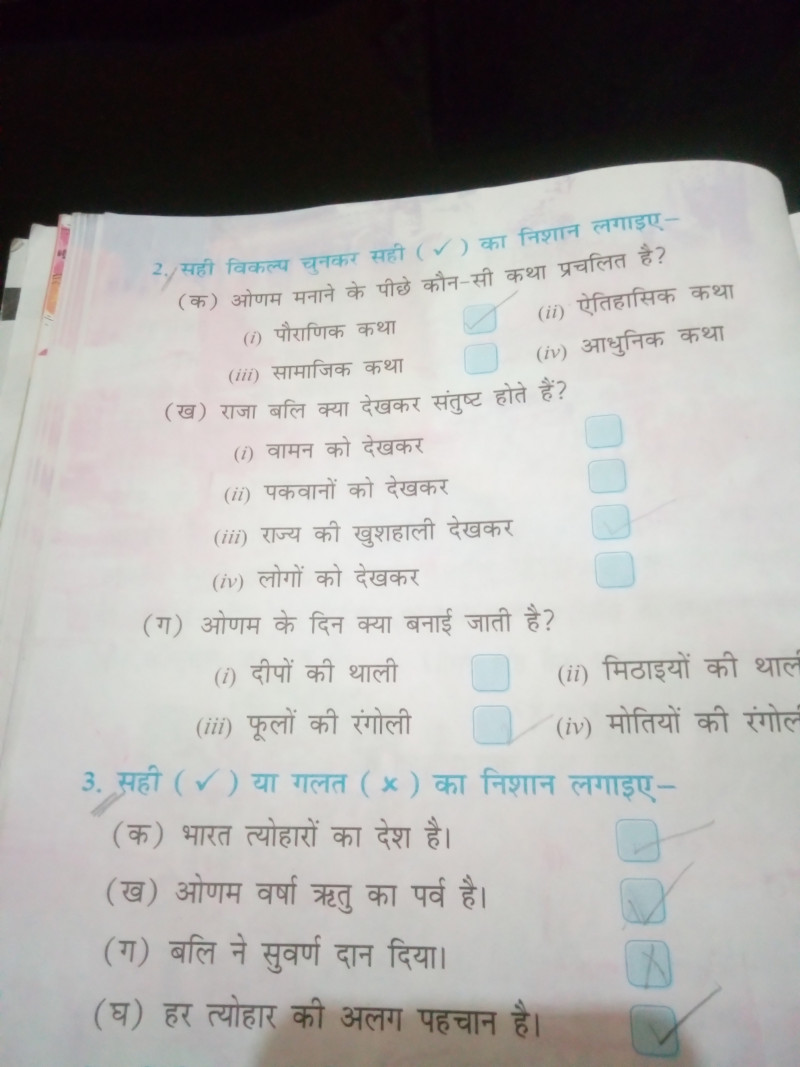 2. सही विकल्प चुनकर सही ( ✓ ) का निशान लगाइए–
(क) ओणम मनाने के पीछे कौन-सी कथा प्रचलित है?
(i) पौराणिक कथा ✓ (ii) ऐतिहासिक कथा
(iii) सामाजिक कथा (iv) आधुनिक कथा
(ख) राजा बलि क्या देखकर संतुष्ट होते हैं?
(i) वामन को देखकर
(ii) पकवानों को देखकर
(iii) राज्य की खुशहाली देखकर ✓
(iv) लोगों को देखकर
(ग) ओणम के दिन क्या बनाई जाती है?
(i) दीपों की थाली (ii) मिठाइयों की
(iii) फूलों की रंगोली ✓ (iv) मोतियों की
3. सही ( ✓ ) या गलत ( × ) का निशान लगाइए–
(क) भारत त्योहारों का देश है। ✓
(ख) ओणम वर्षा ऋतु का पर्व है। ✓
(ग) बलि ने सुवर्ण दान दिया। ×
(घ) हर त्योहार की अलग पहचान है। ✓